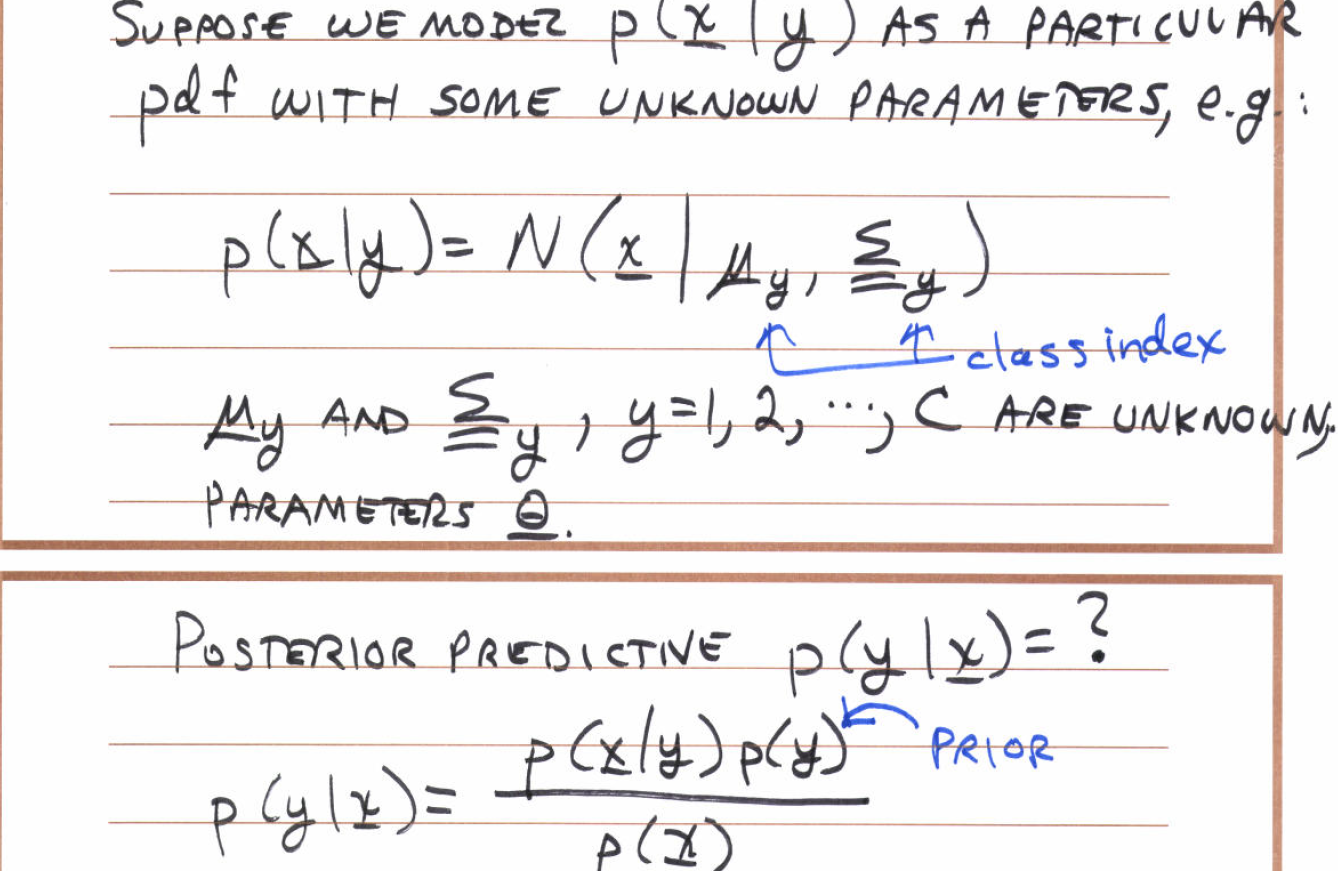 SUPPOSE WE MODEL p(x|y) AS A PARTICULAR
pdf WITH SOME UNKNOWN PARAMETERS, e.g.:
p(x|y) = N(x|μy, Σy)
class index
μy AND Σy, y=1, 2, ..., C ARE UNKNOWN,
PARAMETERS Θ.
POSTERIOR PREDICTIVE p(y|x)=?
p(x|y)p(y) PRIOR
p(y|x)=
p(x)